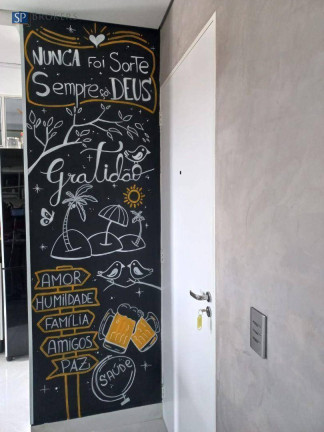 SP BROKERS
NUNCA FOi SORTE
SEMPRE FOi DEUS
Gratidão
AMOR
HUMiLDADE
FAMÍLIA
AMIGOS
PAZ
SAÚDE